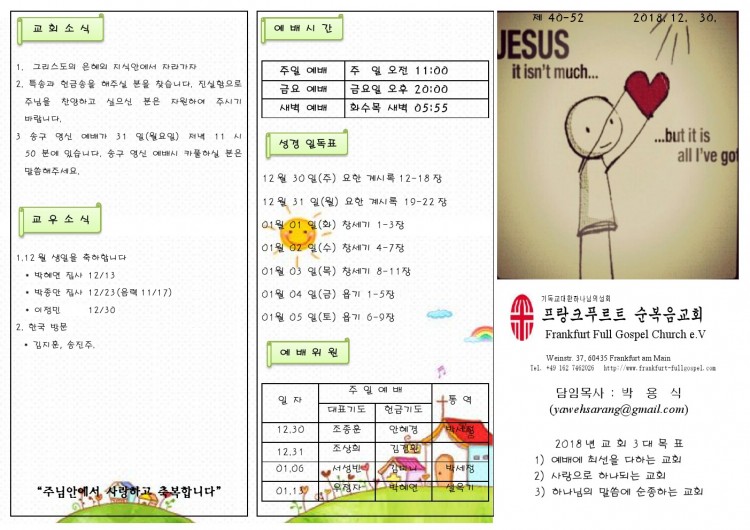 교 회 소 식
1. 그리스도의 은혜와 지식안에서 자라가자
2. 특송과 헌금송을 해주실 분을 찾습니다. 진실함으로
주님을 찬양하고 싶으신 분은 자원하여 주시기
바랍니다.
3 송구 영신 예배가 31 일(월요일) 저녁 11 시
50 분에 있습니다. 송구 영신 예배시 카풀하실 분은
말씀해주세요.
교 우 소 식
1.12 월 생일을 축하합니다
• 박혜연 집사 12/13
• 박종만 집사 12/23(음력 11/17)
• 이정민 12/30
2. 한국 방문
• 김지훈, 송진주.
“주님안에서 사랑하고 축복합니다”
예 배 시 간
주일 예배 주 일 오전 11:00
금요 예배 금요일 오후 20:00
새벽 예배 화수목 새벽 05:55
성경 일독표
12 월 30 일(주) 요한 계시록 12-18 장
12월 31 일(월) 요한 계시록 19-22 장
01월 01 일(화) 창세기 1-3장
01월 02 일(수) 창세기 4-7장
01월 03 일(목) 창세기 8-11장
01월 04 일(금) 욥기 1-5장
01월 05 일(토) 욥기 6-9장
예 배 위 원
일 자 주 일 예 배 통 역
대표기도 헌금기도
12.30 조종훈 안혜경
12.31 조상희
01.06 서성빈 박세정
01.13 박혜연
제 40-52 2018. 12. 30.
JESUS
it isn't much...
...but it is
all I've got
기독교대한하나님의성회
프랑크푸르트 순복음교회
Frankfurt Full Gospel Church e.V
Weinstr. 37, 60435 Frankfurt am Main
Tel. +49 162 7462026 http://www.frankfurt-fullgospel.com
담임목사 : 박 용 식
(yawehsarang@gmail.com)
2018 년 교 회 3 대 목 표
1) 예배에 최선을 다하는 교회
2) 사랑으로 하나되는 교회
3) 하나님의 말씀에 순종하는 교회